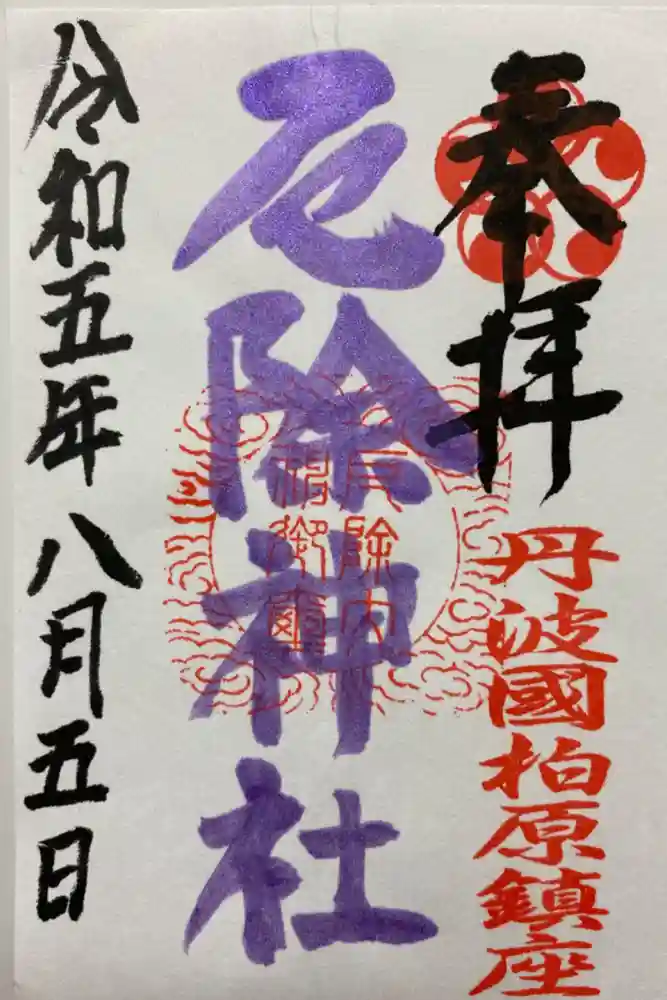 奉拝
丹波國柏原鎮座
厄除神社
令和五年八月五日